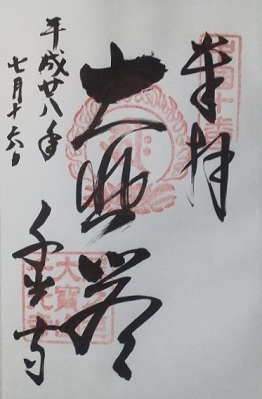 中国十番
奉拝
大悲閣
平成廿八年
七月十六日
千光寺
大寶山
千光寺